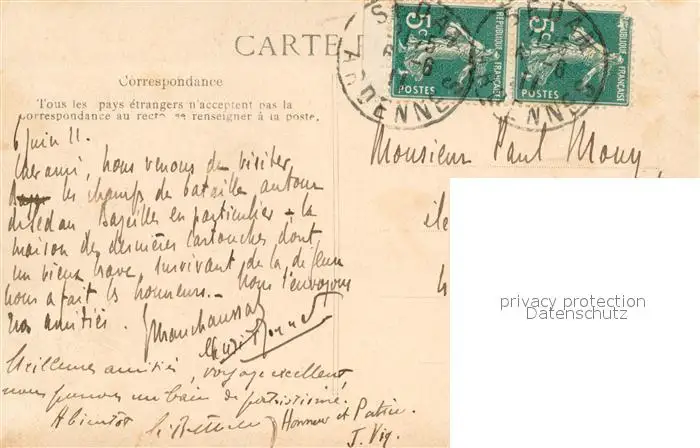 CARTE P
Correspondance
Tous les pays étrangers n'acceptent pas la
correspondance au recto, se renseigner à la poste.
5c RÉPUBLIQUE FRANÇAISE POSTES
5c RÉPUBLIQUE FRANÇAISE POSTES
SEDAN
ARDENNES
SEDAN
ARDENNES
6 juin 11.
Cher ami, nous venons de visiter
les champs de bataille autour
de Sedan Bazeilles en particulier - la
maison des dernières cartouches dont
un vieux brave, survivant de la défense
nous a fait les honneurs - nous t'envoyons
nos amitiés.
Meilleures amitiés, voyage excellent,
nous prenons un bain de patriotisme.
A bientôt
Honneur et Patrie.
J. Vig.
Monsieur Paul Mouy,
privacy protection
Datenschutz